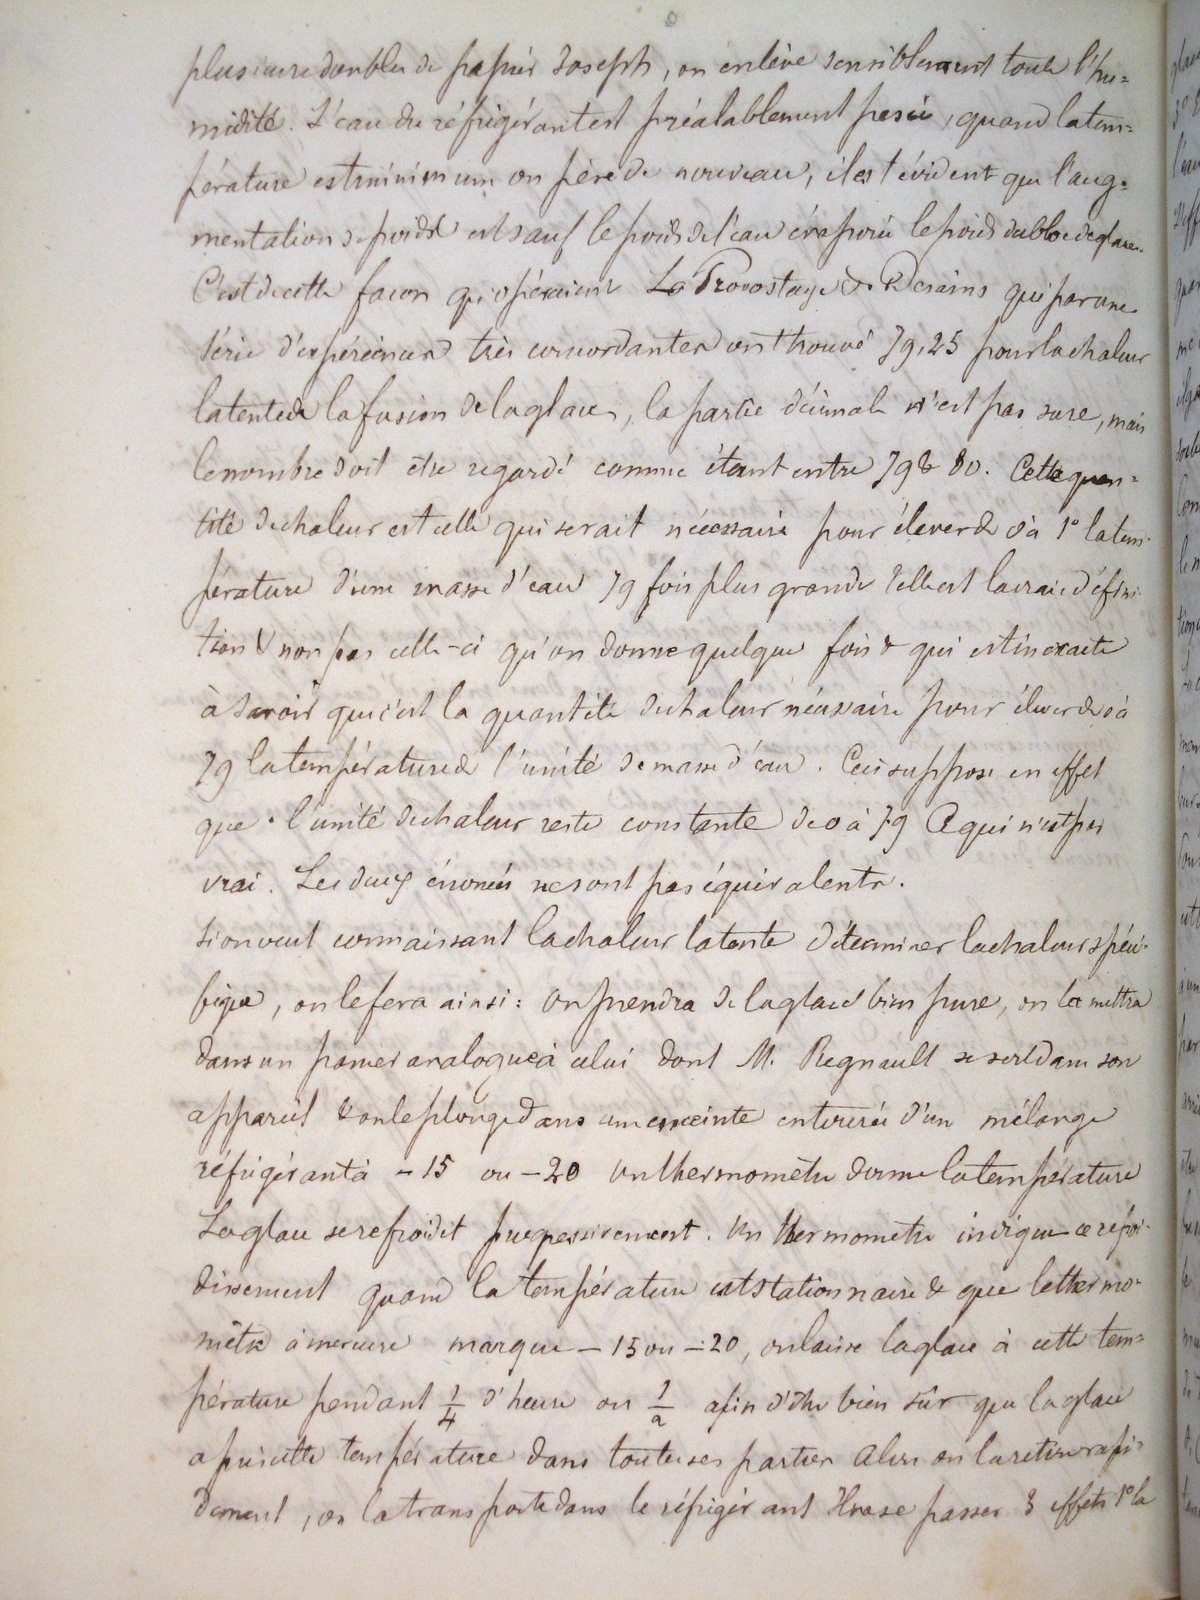 plusieurs doubles de papier Joseph, on enlève sensiblement toute l'hu=
midité. L'eau du réfrigérant est préalablement pesée, quand la tem=
pérature est minimum on pèse de nouveau, il est évident que l'aug=
mentation de poids est sauf le poids de l'eau évaporée le poids du bloc de glace.
C'est de cette façon qu'opéraient La Provostaye & Desains qui par une
série d'expériences très concordantes ont trouvé 79,25 pour la chaleur
latente de la fusion de la glace, la partie décimale n'est pas sure, mais
le nombre doit être regardé comme étant entre 79 & 80. Cette quan=
tité de chaleur est celle qui serait nécessaire pour élever de 0 à 1° la tem=
pérature d'une masse d'eau 79 fois plus grande telle est la vraie défini=
tion & non pas celle-ci qu'on donne quelque fois & qui est inexacte
à savoir que c'est la quantité de chaleur nécessaire pour élever de 0 à
79 la température de l'unité de masse d'eau. Ceci suppose en effet
que l'unité de chaleur reste constante de 0 à 79 Ce qui n'est pas
vrai. Les deux énoncés ne sont pas équivalents.
Si on veut connaissant la chaleur latente déterminer la chaleur spéci=
fique, on le fera ainsi: on prendra de la glace bien pure, on la mettra
dans un panier analogue à celui dont M. Regnault se sert dans son
appareil & on le plonge dans une enceinte entourée d'un mélange
réfrigérant à -15 ou -20 un thermomètre donne la température
La glace se refroidit progressivement. Un thermomètre indique ce refroi=
dissement quand la température est stationnaire & que le thermo=
mètre à mercure marque -15 ou -20, on laisse la glace à cette tem=
pérature pendant 1/4 d'heure ou 1/2 afin d'être bien sûr que la glace
a pris cette température dans toutes ses parties Alors on la retire rapi=
dement, on la transporte dans le réfrigérant Il va se passer 3 effets 1° la